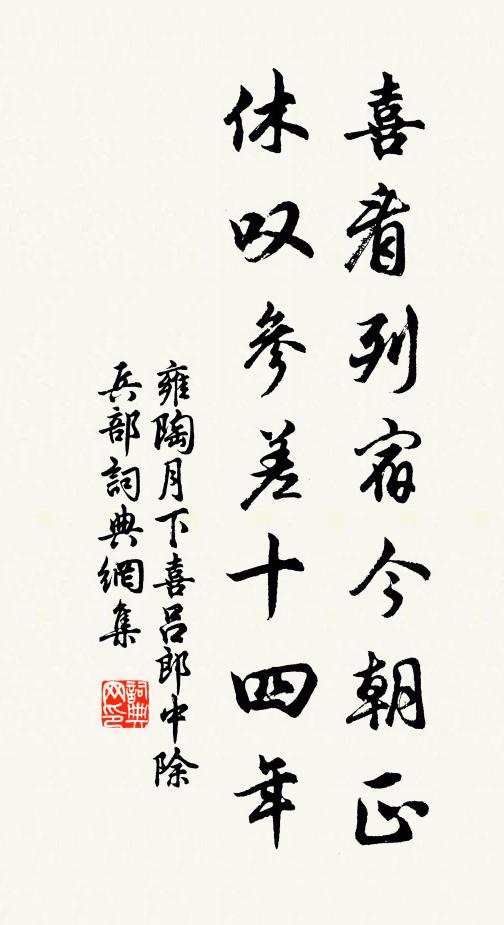 喜看列宿今朝正
休叹參差十四年
雍陶月下喜吕郎中除
兵部詞典網集
詞典网印